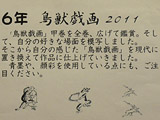 6年 鳥獣戯画 2011
「鳥獣戯画」甲巻を全巻、広げて鑑賞。そし
て、自分の好きな場面を模写しました。
そこから自分の感じた「鳥獣戯画」を現代に
置き換えて作品に仕上げていきました。
青墨や、顔彩を使用している点にも、ご注
目ください。